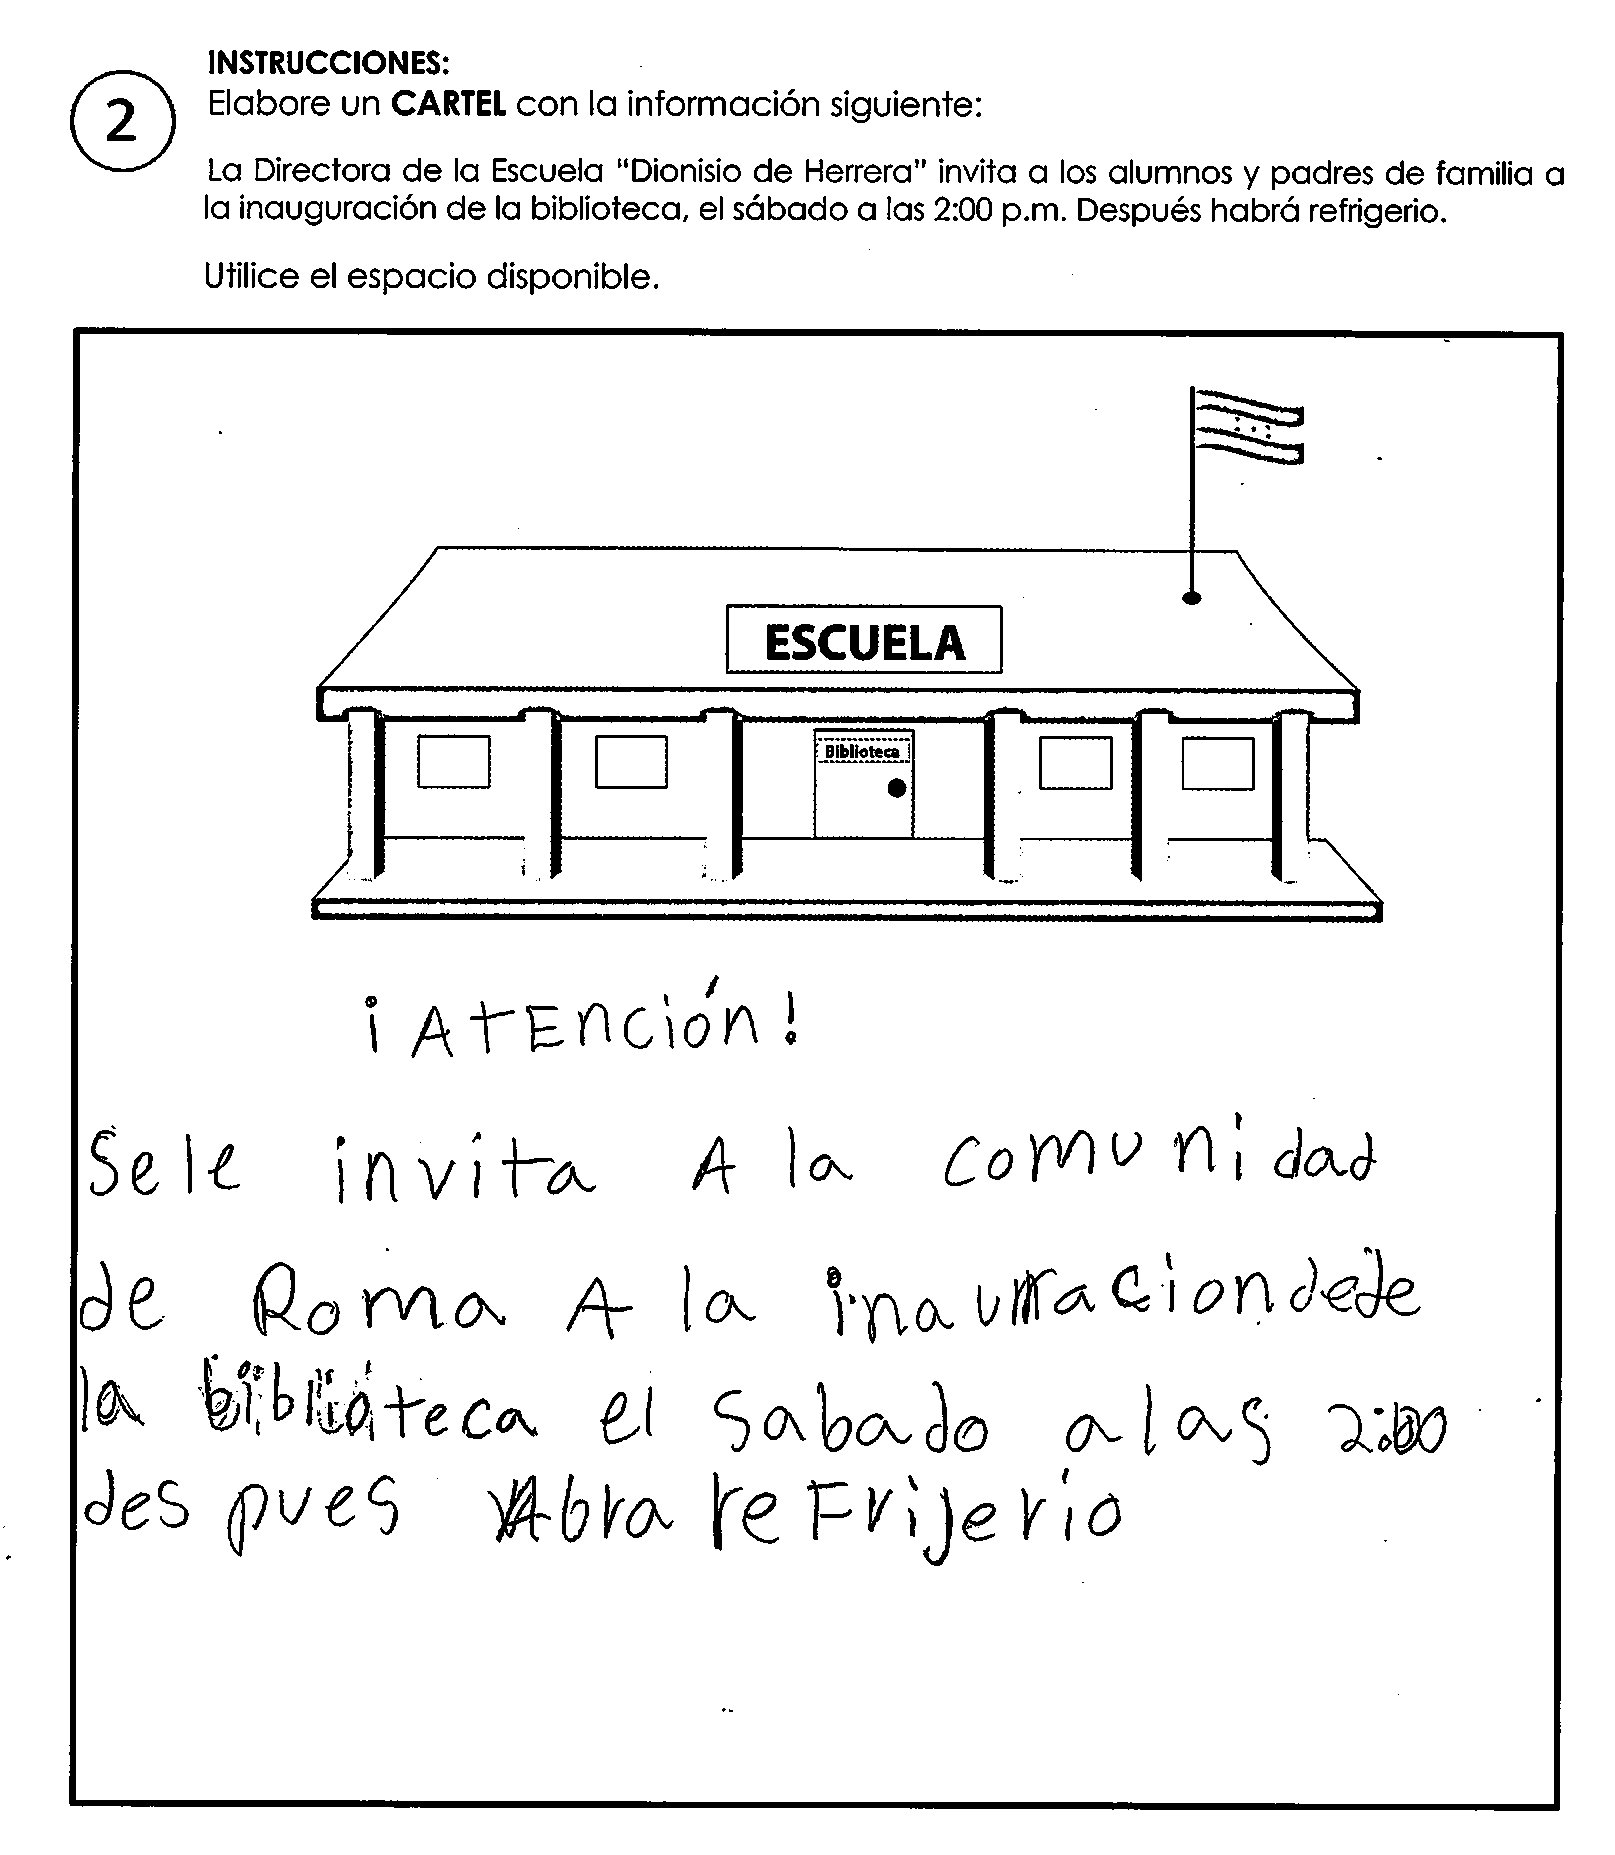 INSTRUCCIONES:
2
Elabore un CARTEL con la información siguiente:
La Directora de la Escuela "Dionisio de Herrera" invita a los alumnos y padres de familia a
la inauguración de la biblioteca, el sábado a las 2:00 p.m. Después habrá refrigerio.
Utilice el espacio disponible.
ESCUELA
Biblioteca
¡AtEnción!
Sele invita A la comunidad
de Roma A la dede
la biblioteca el Sabado alas 2:00
des pues Abra reFrijerio